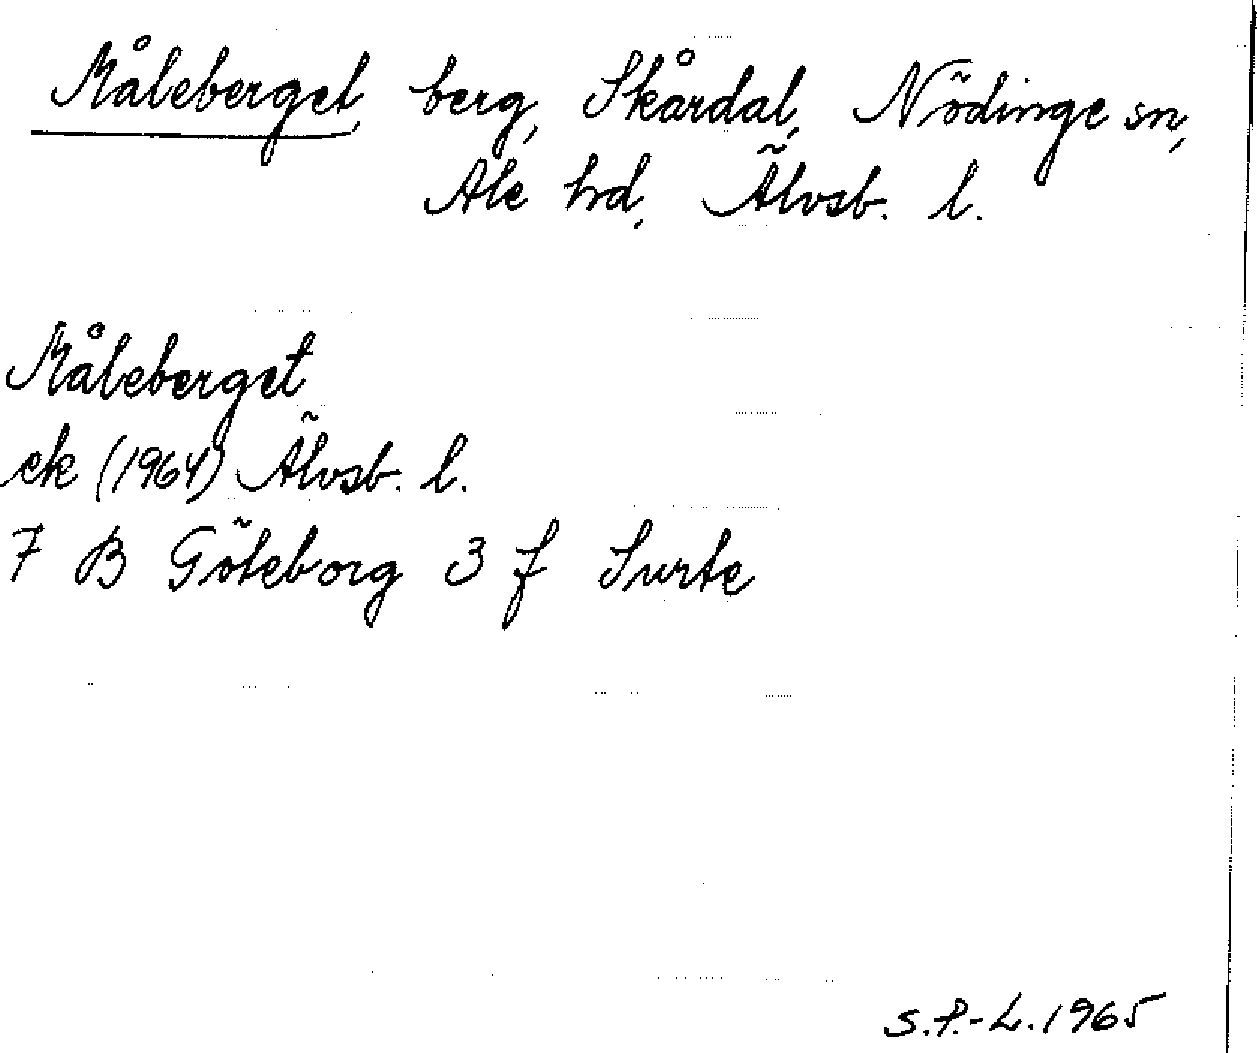 Måleberget, berg, Skårdal, Nödinge sn,
Ale hd, Älvsb. l.
Måleberget
ek (1964) Älvsb. l.
7 B Göteborg 3 f Surte
S.P.-L. 1965